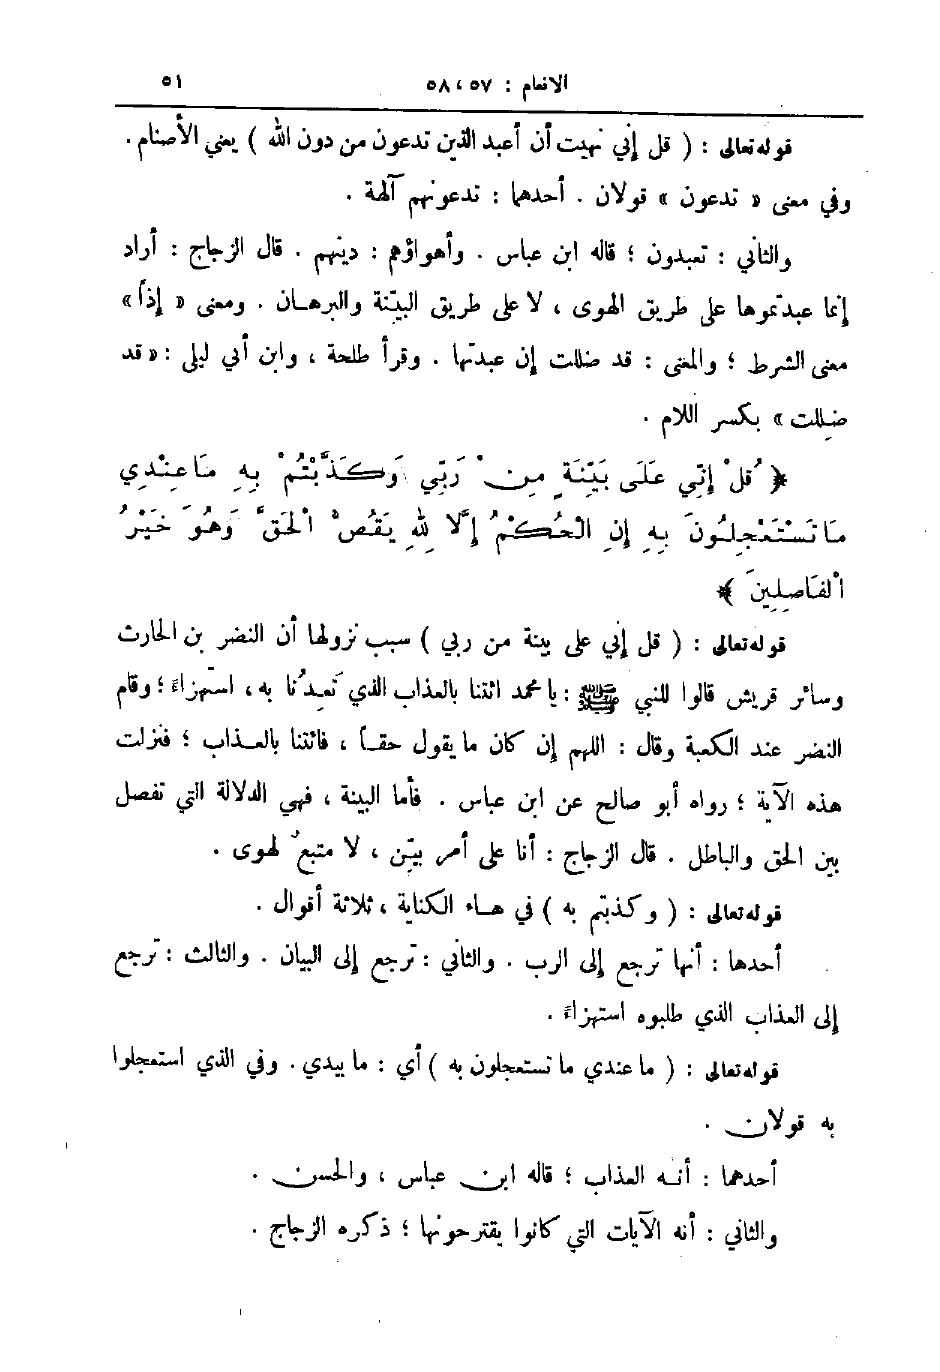 الانعام : ٥٧ ، ٥٨ ٥١
قوله تعالى : ( قل إني نهيت أن أعبد الذين تدعون من دون الله ) يعني الأصنام .
وفي معنى « تدعون » قولان . أحدهما : تدعونهم آلهة .
والثاني : تعبدون ؛ قاله ابن عباس . وأهواؤهم : دينهم . قال الزجاج : أراد
إنما عبدتموها على طريق الهوى ، لا على طريق البيّنة والبرهان . ومعنى « إذاً »
معنى الشرط ؛ والمعنى : قد ضللت إن عبدتها . وقرأ طلحة ، وابن أبي ليلى : « قد
ضلِلت » بكسر اللام .
﴿ قُلْ إِنِّي عَلَى بَيِّنَةٍ مِنْ رَبِّي وَكَذَّبْتُمْ بِهِ مَا عِنْدِي
مَا تَسْتَعْجِلُونَ بِهِ إِنِ الْحُكْمُ إِلَّا لِلّٰهِ يَقُصُّ الْحَقَّ وَهُوَ خَيْرُ
الْفَاصِلِينَ ﴾
قوله تعالى : ( قل إني على بينة من ربي ) سبب نزولها أن النضر بن الحارث
وسائر قريش قالوا للنبي ﷺ : يا محمد ائتنا بالعذاب الذي تَعِدُنا به ، استهزاءً ؛ وقام
النضر عند الكعبة وقال : اللهم إن كان ما يقول حقاً ، فائتنا بالعذاب ؛ فنزلت
هذه الآية ؛ رواه أبو صالح عن ابن عباس . فأما البينة ، فهي الدلالة التي تفصل
بين الحق والباطل . قال الزجاج : أنا على أمر بيّن ، لا متبعٌ لهوى .
قوله تعالى : ( وكذبتم به ) في هاء الكناية ، ثلاثة أقوال .
أحدها : أنها ترجع إلى الرب . والثاني : ترجع إلى البيان . والثالث : ترجع
إلى العذاب الذي طلبوه استهزاءً .
قوله تعالى : ( ما عندي ما تستعجلون به ) أي : ما بيدي . وفي الذي استعجلوا
به قولان .
أحدهما : أنه العذاب ؛ قاله ابن عباس ، والحسن .
والثاني : أنه الآيات التي كانوا يقترحونها ؛ ذكره الزجاج .